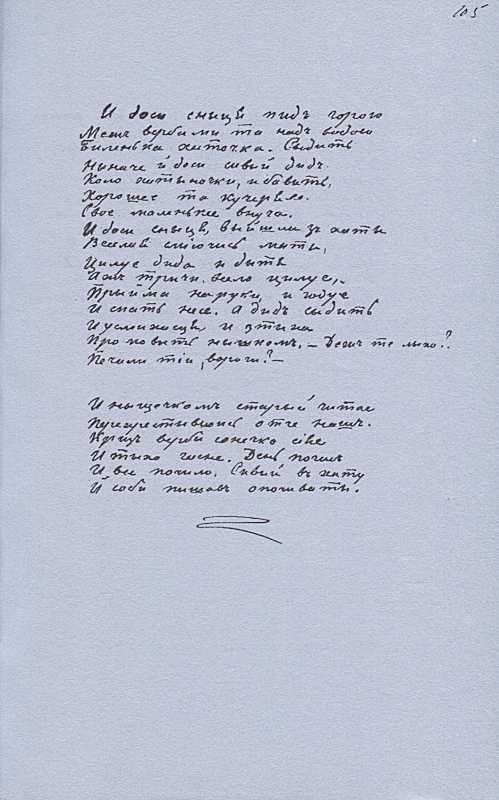 105
И доси сныця пидъ горою
Межъ вербами та надъ водою
Биленька хаточка. Сыдыть
Ныначе й доси сивый дидъ
Коло хатыночки, и бавыть,
Хорошее та кучеряве
Свое маленькее внуча.
И доси сныця, выйшла зъ хаты
Веселая сміючысь маты,
Цилує дида и дытя
Ажъ тричи весело цилує,
Прыйма на руки, и годує
И спать несе. А дидъ сыдыть
И усмихаеця, и стыха
Промовыть нышкомъ. — Дежъ те лыхо?
Печали тіи, вороги? —
И ныщечкомъ старый читае
Перехрестывшись отче нашъ.
Крізь верби сонечко сіяе
И тыхо гасне. День погасъ
И все почило. Сивый в хату
Й соби пишовъ опочивати.